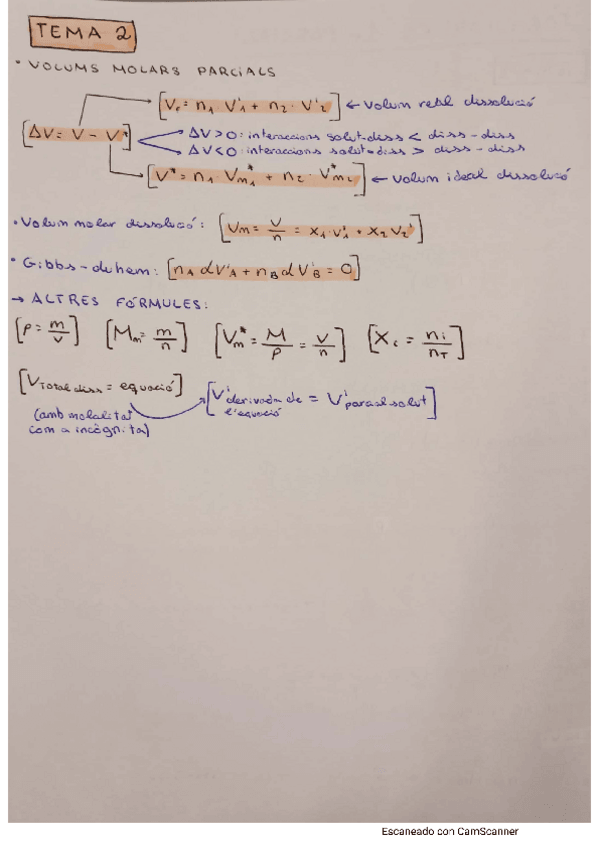 TEMA 2
• VOLUMS MOLARS PARCIALS
[Vr = n1 V'1 + n2 · V'2] ← Volum real dissolució
[ΔV = V - V*]
ΔV>0: interaccions solut-diss < diss-diss
ΔV<0: interaccions solut-diss > diss-diss
[V* = n1 · Vm1* + n2 · Vm2*] ← Volum ideal dissolució
• Volum molar dissolució: [Vm = V/n = x1 · V'1 + x2 V2']
• Gibbs-duhem: [nA dV'A + nB dV'B = 0]
→ ALTRES FÓRMULES:
[ρ = m/v] [Mm = m/n] [Vm* = M/ρ = V/n] [Xi = ni/nT]
[VTotal diss = equació] [V'derivada de l'equació = V'parcial solut]
(amb molalitat
com a incògnita)
Escaneado con CamScanner